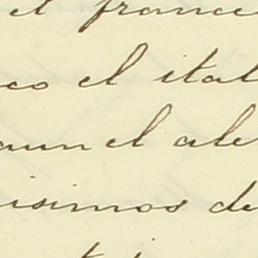 el france
co el ital
aun el ale
isimos de